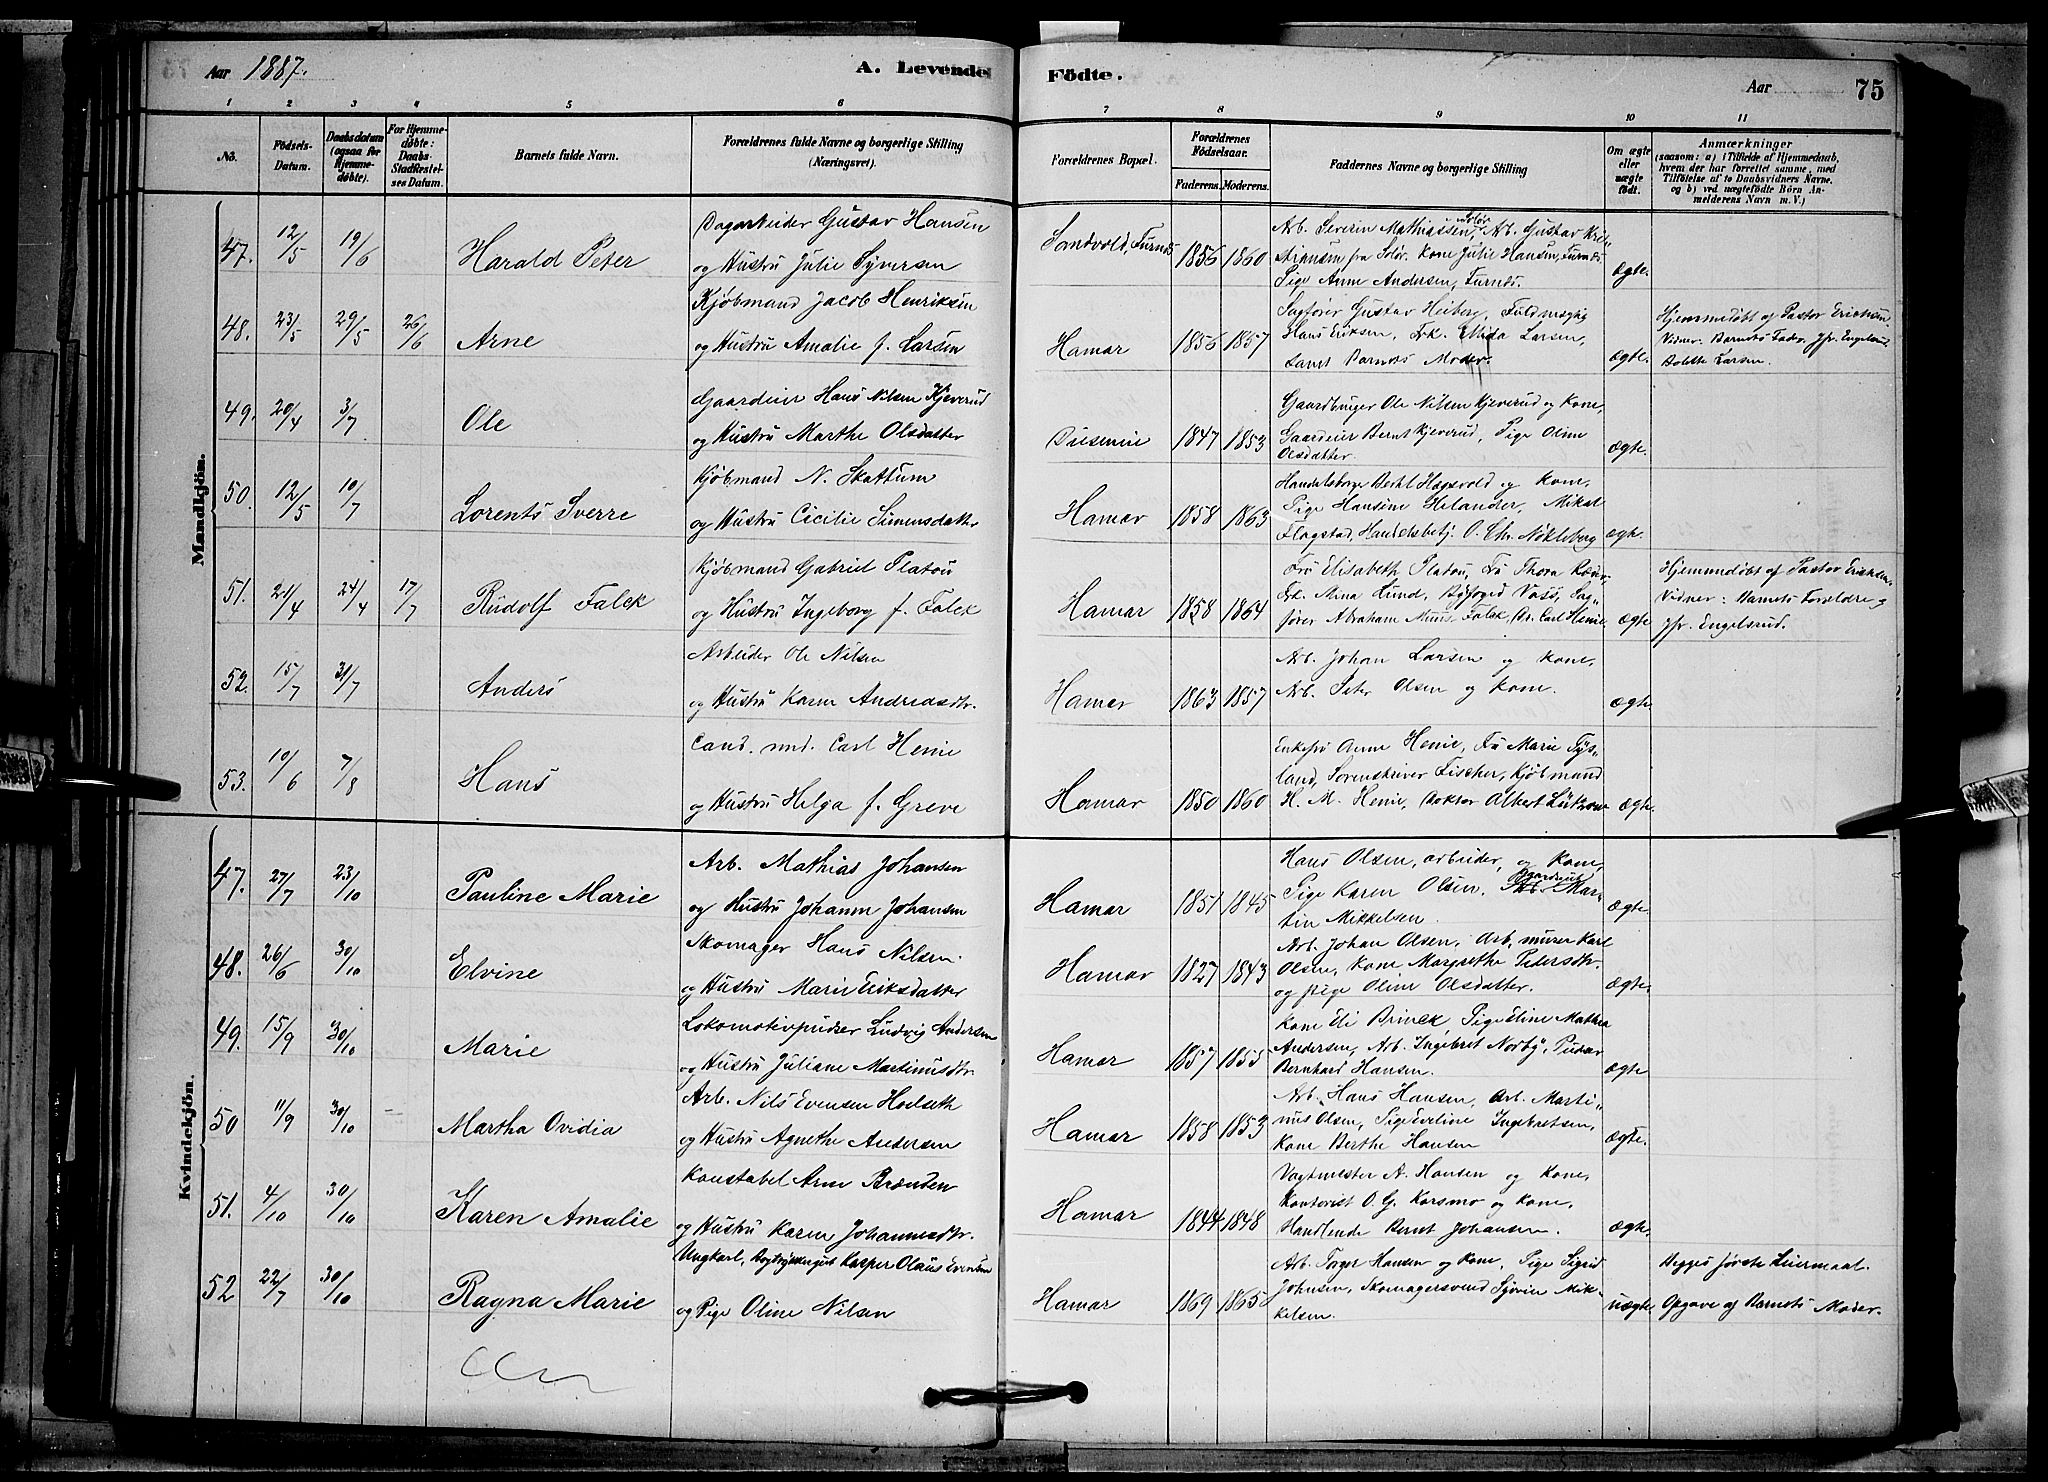 Aar 1887. A. Levende Födte. Aar 75
1 2 3 4 5 6 7 8 9 10 11
No. Födsels-Datum. Daabsdatum (ogsaa for Hjemmedöbte). For Hjemmedöbte: Daabs-Stadfæstelses Datum. Barnets fulde Navn. Forældrenes fulde Navne og borgerlige Stilling (Næringsvei). Forældrenes Bopæl. Forældrenes Födselsaar. Faderens. Moderens. Faddernes Navne og borgerlige Stilling Om ægte eller uægte födt. Anmærkninger (saasom: a) i Tilfælde af Hjemmedaab, hvem der har forrettet samme, med Tilföielse af to Daabsvidners Navne, og b) ved uægtefödte Börn Anmelderens Navn m. V.)
Mandkjön.
47. 12/5 19/6 Harald Peter
Dagarbeider Gustav Hansen
og Hustru Julie Syversen
Sandvold, Furnes 1856 1860
Arb. Severin Mathiassen, Solør, Arb. Gustav Kri-
stiansen fra Solør. Kone Julie Hansen, Furnes
Pige Anne Andersen, Furnes.
ægte.
48. 23/5 29/5 26/6 Arne
Kjöbmand Jacob Henriksen
og Hustru Amalie f. Larsen
Hamar 1856 1857
Sagförer Gustav Heiberg, Fuldmægtig
Hans Eriksen, Frk. Larsen,
samt Barnets Moder.
ægte.
Hjemmedöbt af Pastor Erichsen.
Vidner. Barnets Fader, Jfr. Engelsrud,
Bolette Larsen.
49. 20/4 3/7 Ole
Gaardeier Hans Nilsen Kjeverud
og Hustru Marthe Olsdatter
1847 1853
Gaardbruger Ole Nilsen Kjeverud og Kone,
Gaardeier Bernt Kjeverud, Pige Oline
Olsdatter.
ægte.
50. 12/5 10/7 Lorents Sverre
Kjöbmand N. Skattum
og Hustru Cicilie Simensdatter
Hamar 1858 1863
Handelsborger Hagevold og Kone,
Pige Hansine Helander, Mikal
Flagstad, Handelsbetj. O. Chr. Nökleberg
ægte.
51. 21/4 24/4 17/7 Rudolf Falck
Kjöbmand Gabriel Platou
og Hustru Ingeborg f. Falck
Hamar 1858 1864
Fru Elisabeth Platou, Fru Thora Roeder,
Frk. Mina Lund, Byfoged Voss, Sag-
förer Abraham Falck, Dr. Carl Henie
ægte
Hjemmedöbt af Pastor Erichsen.
Vidner: Barnets Forældre og
Jfr. Engelsrud.
52. 15/7 31/7 Anders
Arbeider Ole Nilsen
og Hustru Karen Andreasdtr.
Hamar 1863 1857
Arb. Johan Larsen og Kone,
Arb. Peter Olsen og Kone.
ægte.
53. 10/6 7/8 Hans
Cand. med. Carl Henie
og Hustru Helga f. Greve
Hamar 1850 1860
Enkefru Anne Henie, Fru Marie Tys-
land, Sorenskriver Fischer, Kjöbmand
H. M. Henie, Doktor Albert
ægte.
Kvindekjön.
47. 27/7 23/10 Pauline Marie
Arb. Mathias Johansen
og Hustru Johanne Johansen
Hamar 1851 1845
Hans Olsen, arbeider, og Kone,
Pige Karen Olsen. Gaardeier Mar-
tin Mikkelsen.
ægte
48. 26/6 30/10 Elvine
Skomager Hans Nilsen.
og Hustru Marie Eriksdatter
Hamar 1827 1843
Arb. Johan Olsen, Arb. murer Karl
Olsen, Kone Margrethe Petersdtr.
og pige Oline Olsdatter.
ægte.
49. 15/9 30/10 Marie
Lokomotivpudser Ludvig Andersen
og Hustru Juliane Martinusdtr.
Hamar 1857 1855
Kone Eli Brinck, Pige Eline Mathea
Andersen, Arb. Ingebret Norby, Pudser
Bernhard Hansen.
ægte
50 11/9 30/10 Martha Ovidia
Arb. Nils Evensen Hoelseth
og Hustru Agnethe Andersen
Hamar 1858 1853
Arb. Hans Hansen, Arb. Marti-
nus Olsen, Pige Eveline Ingebretsen,
Kone Berthe Hansen
ægte.
51. 4/10 30/10 Karen Amalie
Konstabel Arne Brænden
og Hustru Karen Johannesdtr.
Hamar 1844 1848
Vagtmester A. Hansen og Kone,
Kontorist O. G. Korsmo og Kone,
Handlende Bernt Johansen.
ægte.
52 22/7 30/10 Ragna Marie
Ungkarl, Kasper Olaus Evensen
og Pige Oline Nilsen
Hamar 1869 1865
Arb. Torger Hansen og Kone, Pige Sigrid
Johnsen, Skomagersvend Syver Mik-
kelsen.
uægte
Begges første Leiermaal.
Opgave af Barnets Moder.